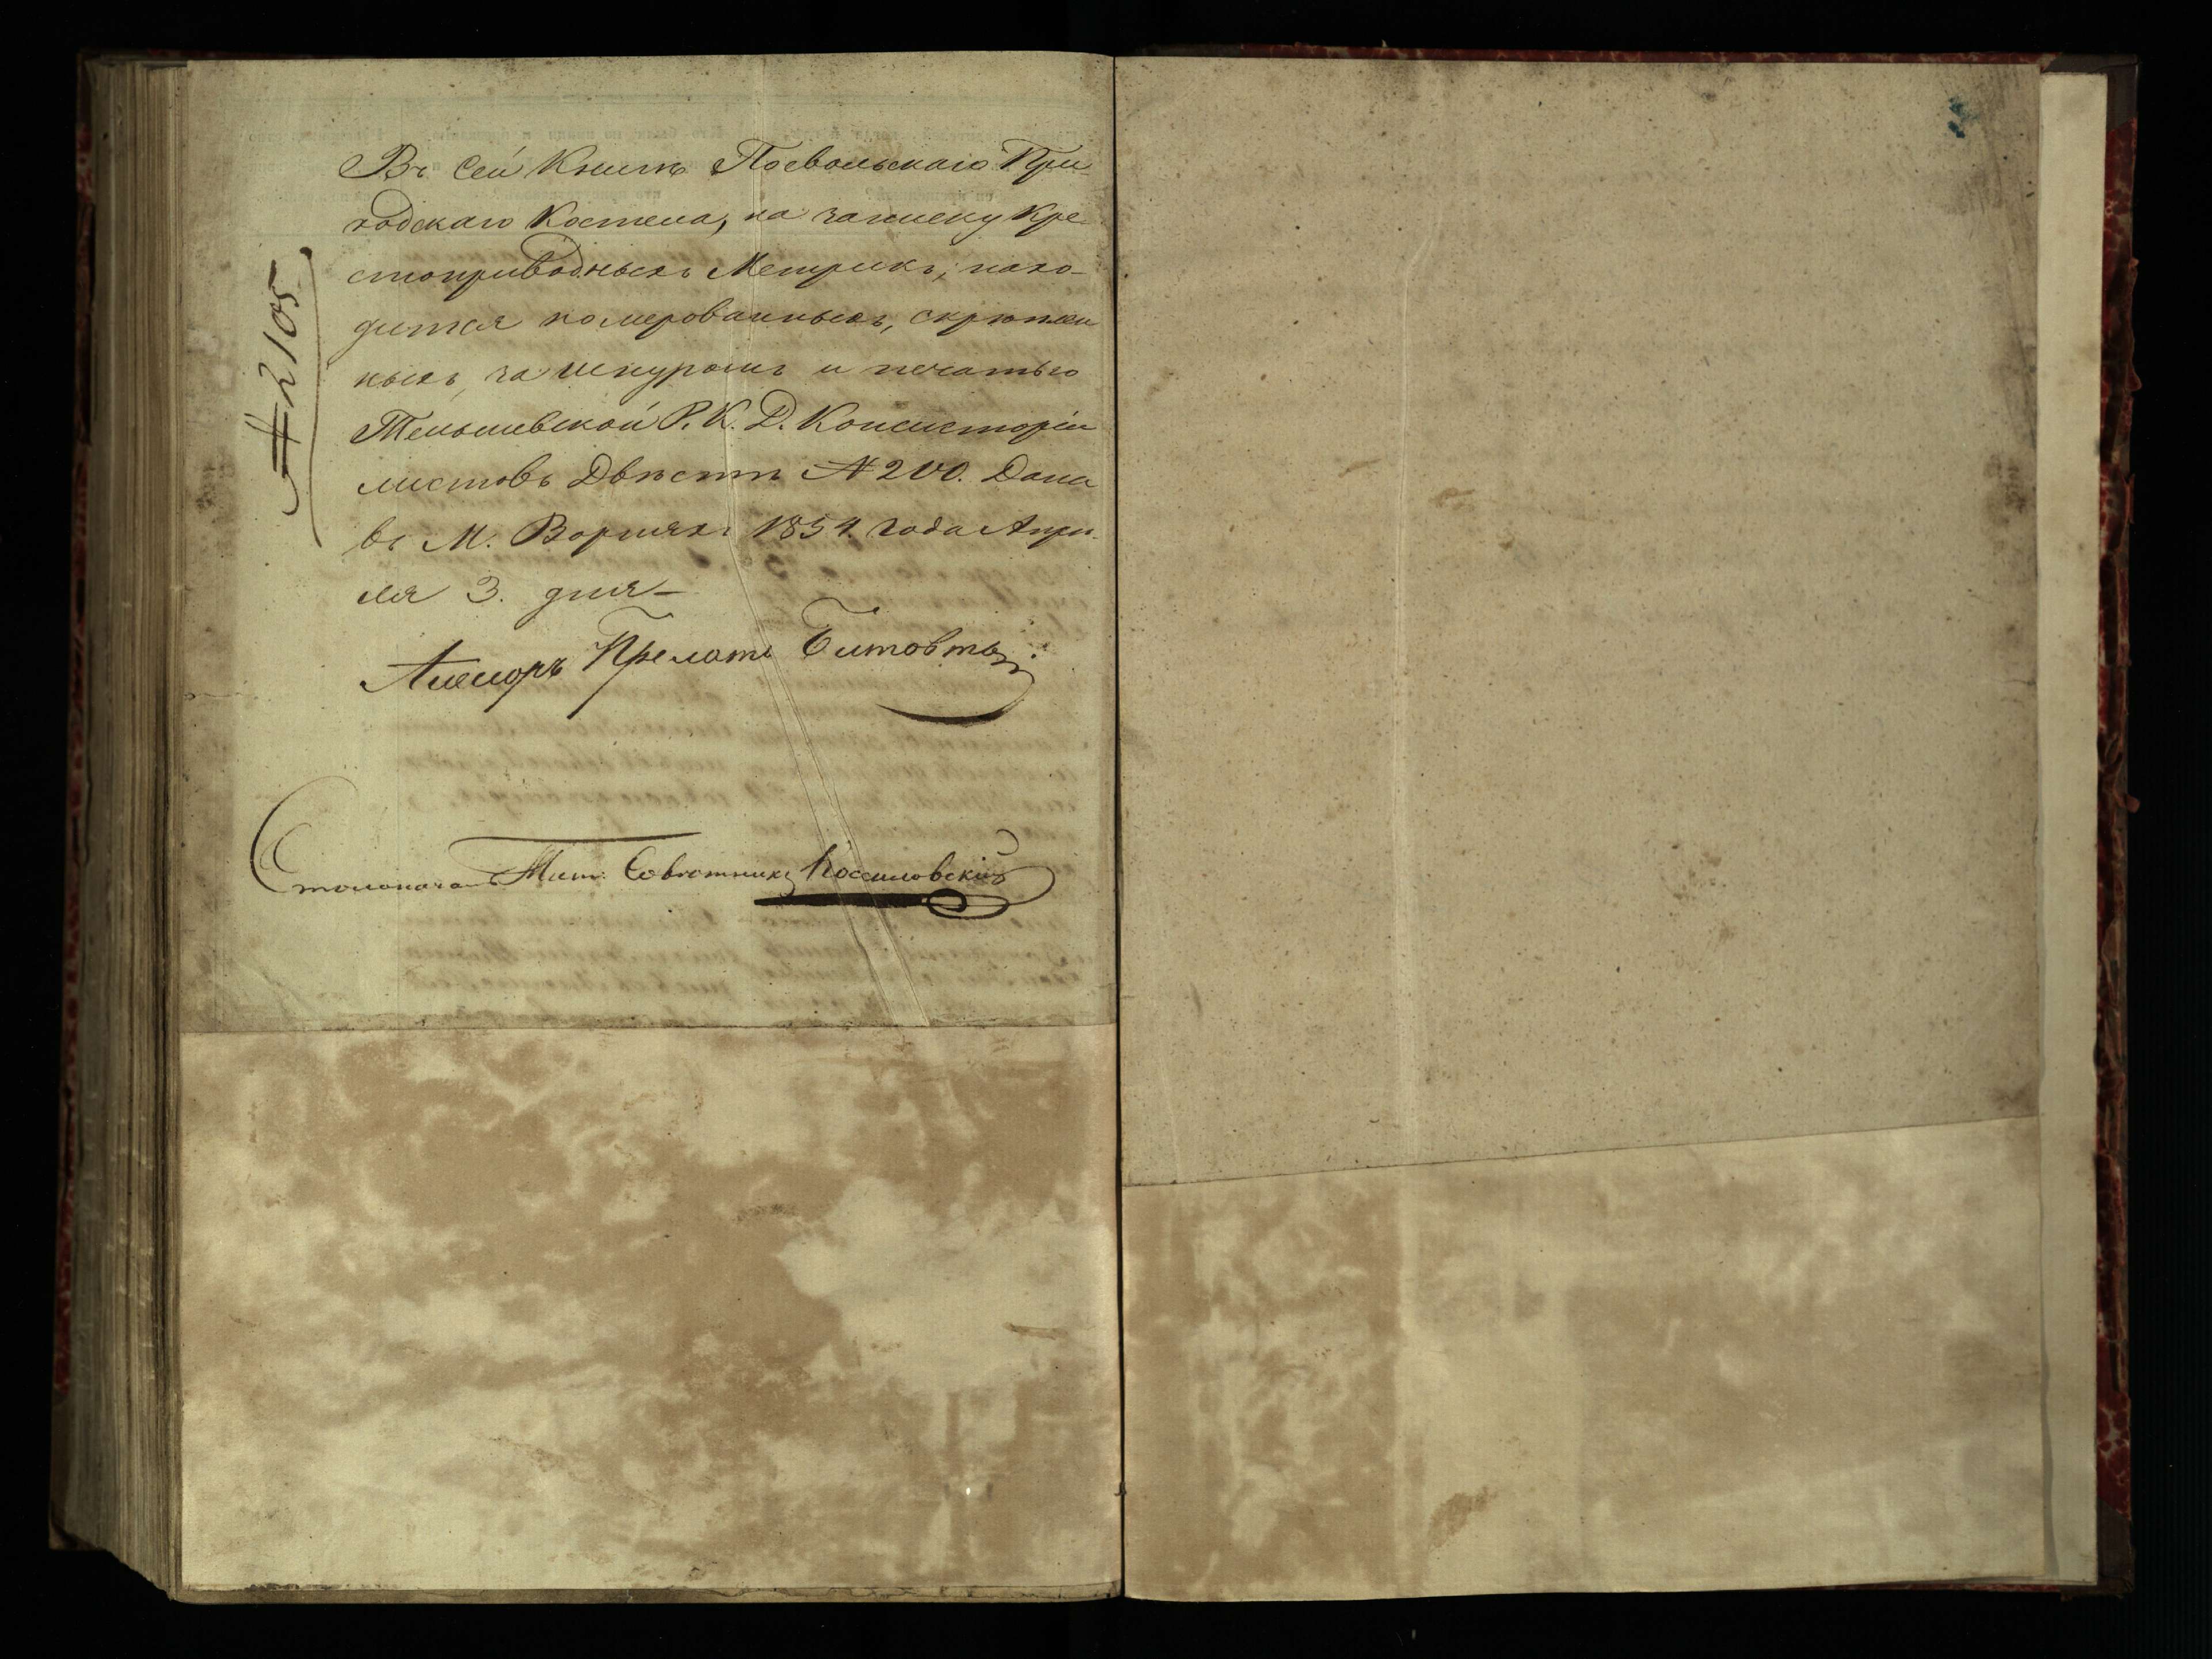 № 2105
Въ сей Книгѣ Посвольскаго При
ходскаго Костела, на записку Кре
стоприводныхъ Метрикъ, нахо-
дится номерованныхъ, скрѣплен
ныхъ, за шнуромъ и печатью
Тельшевской Р. К. Д. Консисторіи
листовъ Двѣсти № 200. Дана
въ М. Ворняхъ 1854. года Апрѣ
ля 3. дня –
Асессоръ Прелатъ Битовтъ
Столоначал: Тит: Совѣтникъ Коссиловскій